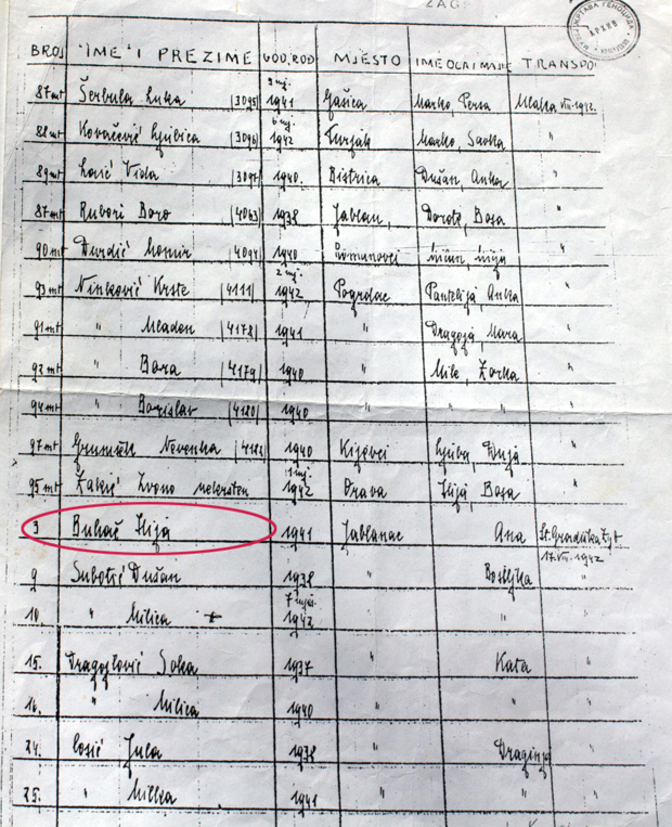 ZAG
BROJ IME I PREZIME GOD. ROĐ MJESTO IME OCA I MAJKE TRANSPO
87mt Šerbula Luka (3095) 1941 Gašica Marko, Persa Mlaka VII. 1942.
88mt Kovačević Ljubica (3096) 6 mj. 1942 Turjak Marko, Savka "
89mt Lazić Vida (3097) 1940. Bistrica Dušan, Anka "
87mt Rubori Boro (4063) 1938 Jablan, Doroté, Bosa "
90mt Đurđić Momir (4094) 1940 Romanovci "
93mt Ninković Krste (4111) 2 mj. 1942 Pogrdac Pantelija, Anka "
91mt " Mladen (4178) 1941 " Dragoja, Mara "
92mt " Bora (4179) 1940 " Mile, Zorka "
94mt " Borislav (4180) 1940 " " "
97mt Nevenka (4182 1940 Kijevci Ljuba, "
95mt Zvono nekršten 1 mj. 1942 Orava Ilija, Bosa "
3 Bukač Ilija 1941 Jablanac Ana St. Gradiška
17. VII. 1942
9 Subotić Dušan 1938 " Bosiljka "
10. " Milica + 7 mjes. 1942 " "
15. Dragojlović Soka 1937 " Kata "
16. " Milica 1940 " "
24. Ćosić Jula 1938 " Draginja "
25. " Milka 1941 " " "